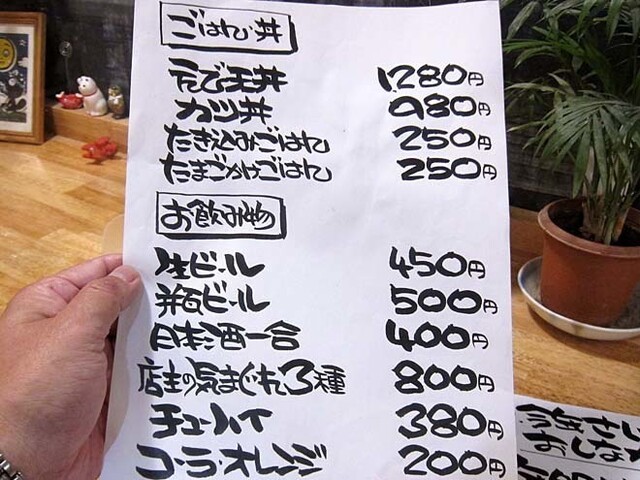 ごはん・丼
えび天丼 1,280円
カツ丼 980円
たき込みごはん 250円
たまごかけごはん 250円
お飲み物
生ビール 450円
瓶ビール 500円
日本酒一合 400円
店主の気まぐれ3種 800円
チューハイ 380円
コーラ・オレンジ 200円